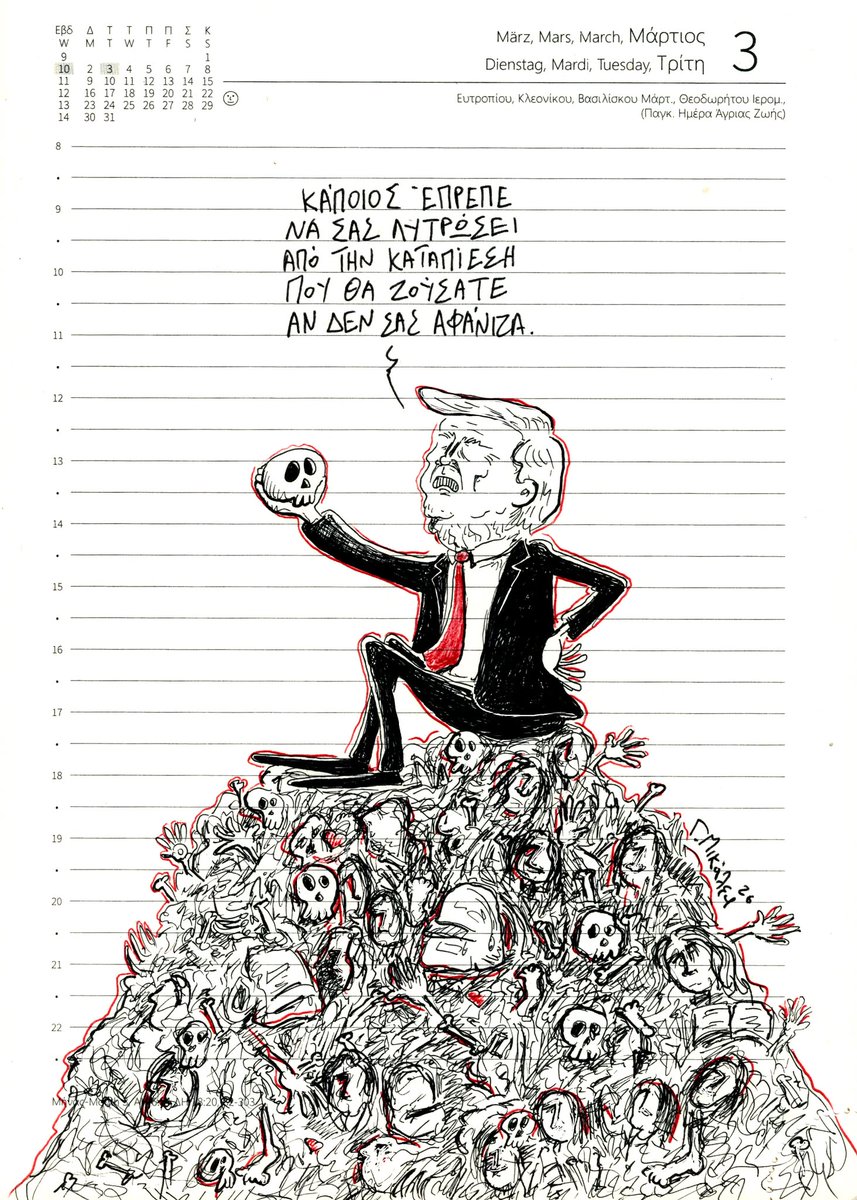 Εβδ Δ Τ Τ Π Π Σ Κ
W M T W T F S S
9 1
10 2 3 4 5 6 7 8
11 9 10 11 12 13 14 15
12 16 17 18 19 20 21 22
13 23 24 25 26 27 28 29
14 30 31
März, Mars, March, Μάρτιος
Dienstag, Mardi, Tuesday, Τρίτη
3
Ευτροπίου, Κλεονίκου, Βασιλίσκου Μάρτ., Θεοδωρήτου Ιερομ.,
(Παγκ. Ημέρα Άγριας Ζωής)
8
9
10
11
12
13
14
15
16
17
18
19
20
21
22
ΚΆΠΟΙΟΣ ΈΠΡΕΠΕ
ΝΆ ΣΑΣ ΛΥΤΡΏΣΕΙ
ΑΠΌ ΤΗΝ ΚΑΤΑΠΊΕΣΗ
ΠΟΥ ΘΑ ΖΟΎΣΑΤΕ
ΑΝ ΔΕΝ ΣΑΣ ΑΦΆΝΙΖΑ.
26